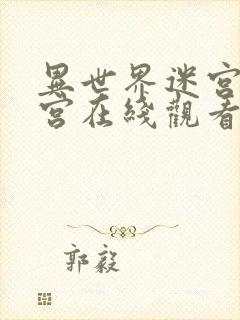 異世界迷宮
宮在綫觀看
郭毅